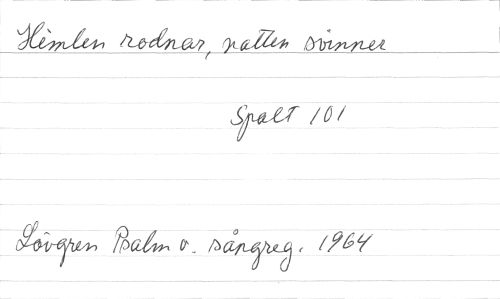 Himlen rodnar, natten svinner
Spalt 101
Lövgren Psalm o. sångreg. 1964